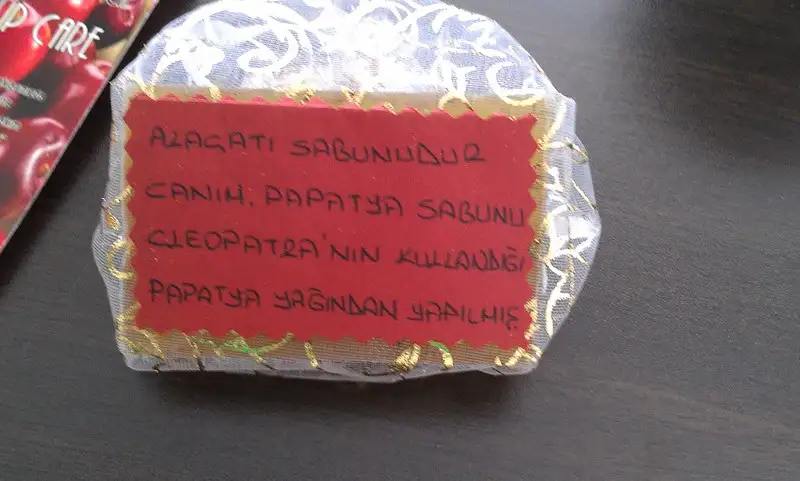 UP CARE
ALAÇATI SABUNUDUR
CANIM. PAPATYA SABUNU
CLEOPATRA'NIN KULLANDIĞI
PAPATYA YAĞINDAN YAPILMIŞ